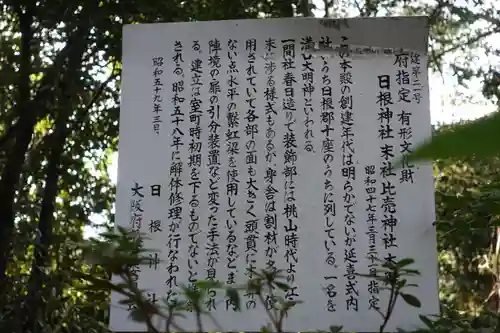 建第二一号
府指定 有形文化財
日根神社末社比売神社本
昭和四十七年三月三十一日指定
この本殿の創建年代は明らかでないが延喜式内
社のうち日根郡十座のうちに列している。一名を
溝し大明神といわれる。
一間社春日造りで装飾部には桃山時代より江
末に渉る様式もあるが、身舎は割材から
用されていて各部の面も大きく頭貫に
ない点水平の繋虹梁を使用しているなど
陣境の扉の引分装置など変った手法が見ら
る。建立は室町時初期を下るものでないと
される。昭和五十八年に解体修理が行なわれた
昭和五十九年三月
日根神社
大阪府